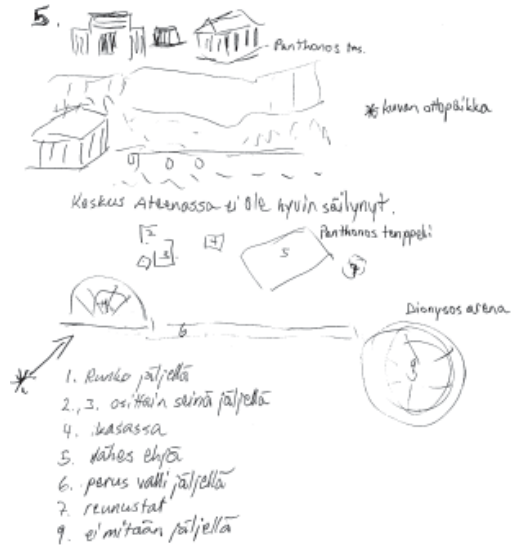 5.
Panthonos tms.
* kuvan ottopaikka
Keskus Ateenassa ei ole hyvin säilynyt.
Panthonos temppeli
2
3
4
5
7
Dionysos arena
1
6
9
1. Runko jäljellä
2., 3. osittain seinä jäljellä
4. kasassa
5. lähes ehjä
6. perus valli jäljellä
7. reunustat
9. ei mitään jäljellä